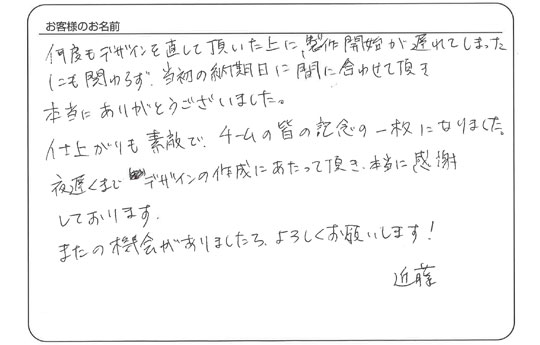 お客様のお名前
何度もデザインを直して頂いた上に、製作開始が遅れてしまった
にも関わらず、当初の納期日に間に合わせて頂き
本当にありがとうございました。
仕上がりも素敵で、チームの皆の記念の一枚になりました。
夜遅くまで デザインの作成にあたって頂き、本当に感謝
しております。
またの機会がありましたら、よろしくお願いします!
近藤